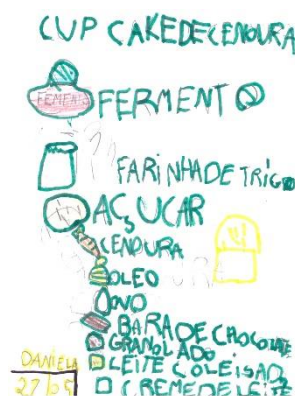 CUP CAKEDECENOURA
FERMENTO
FARINHADETRIGO
AÇUCAR
CENOURA
OLEO
OVO
BARADECHOCOLATE
GRANOLADO
LEITE COLEISAD
CREMEDELEITE
DANIELA
27/05